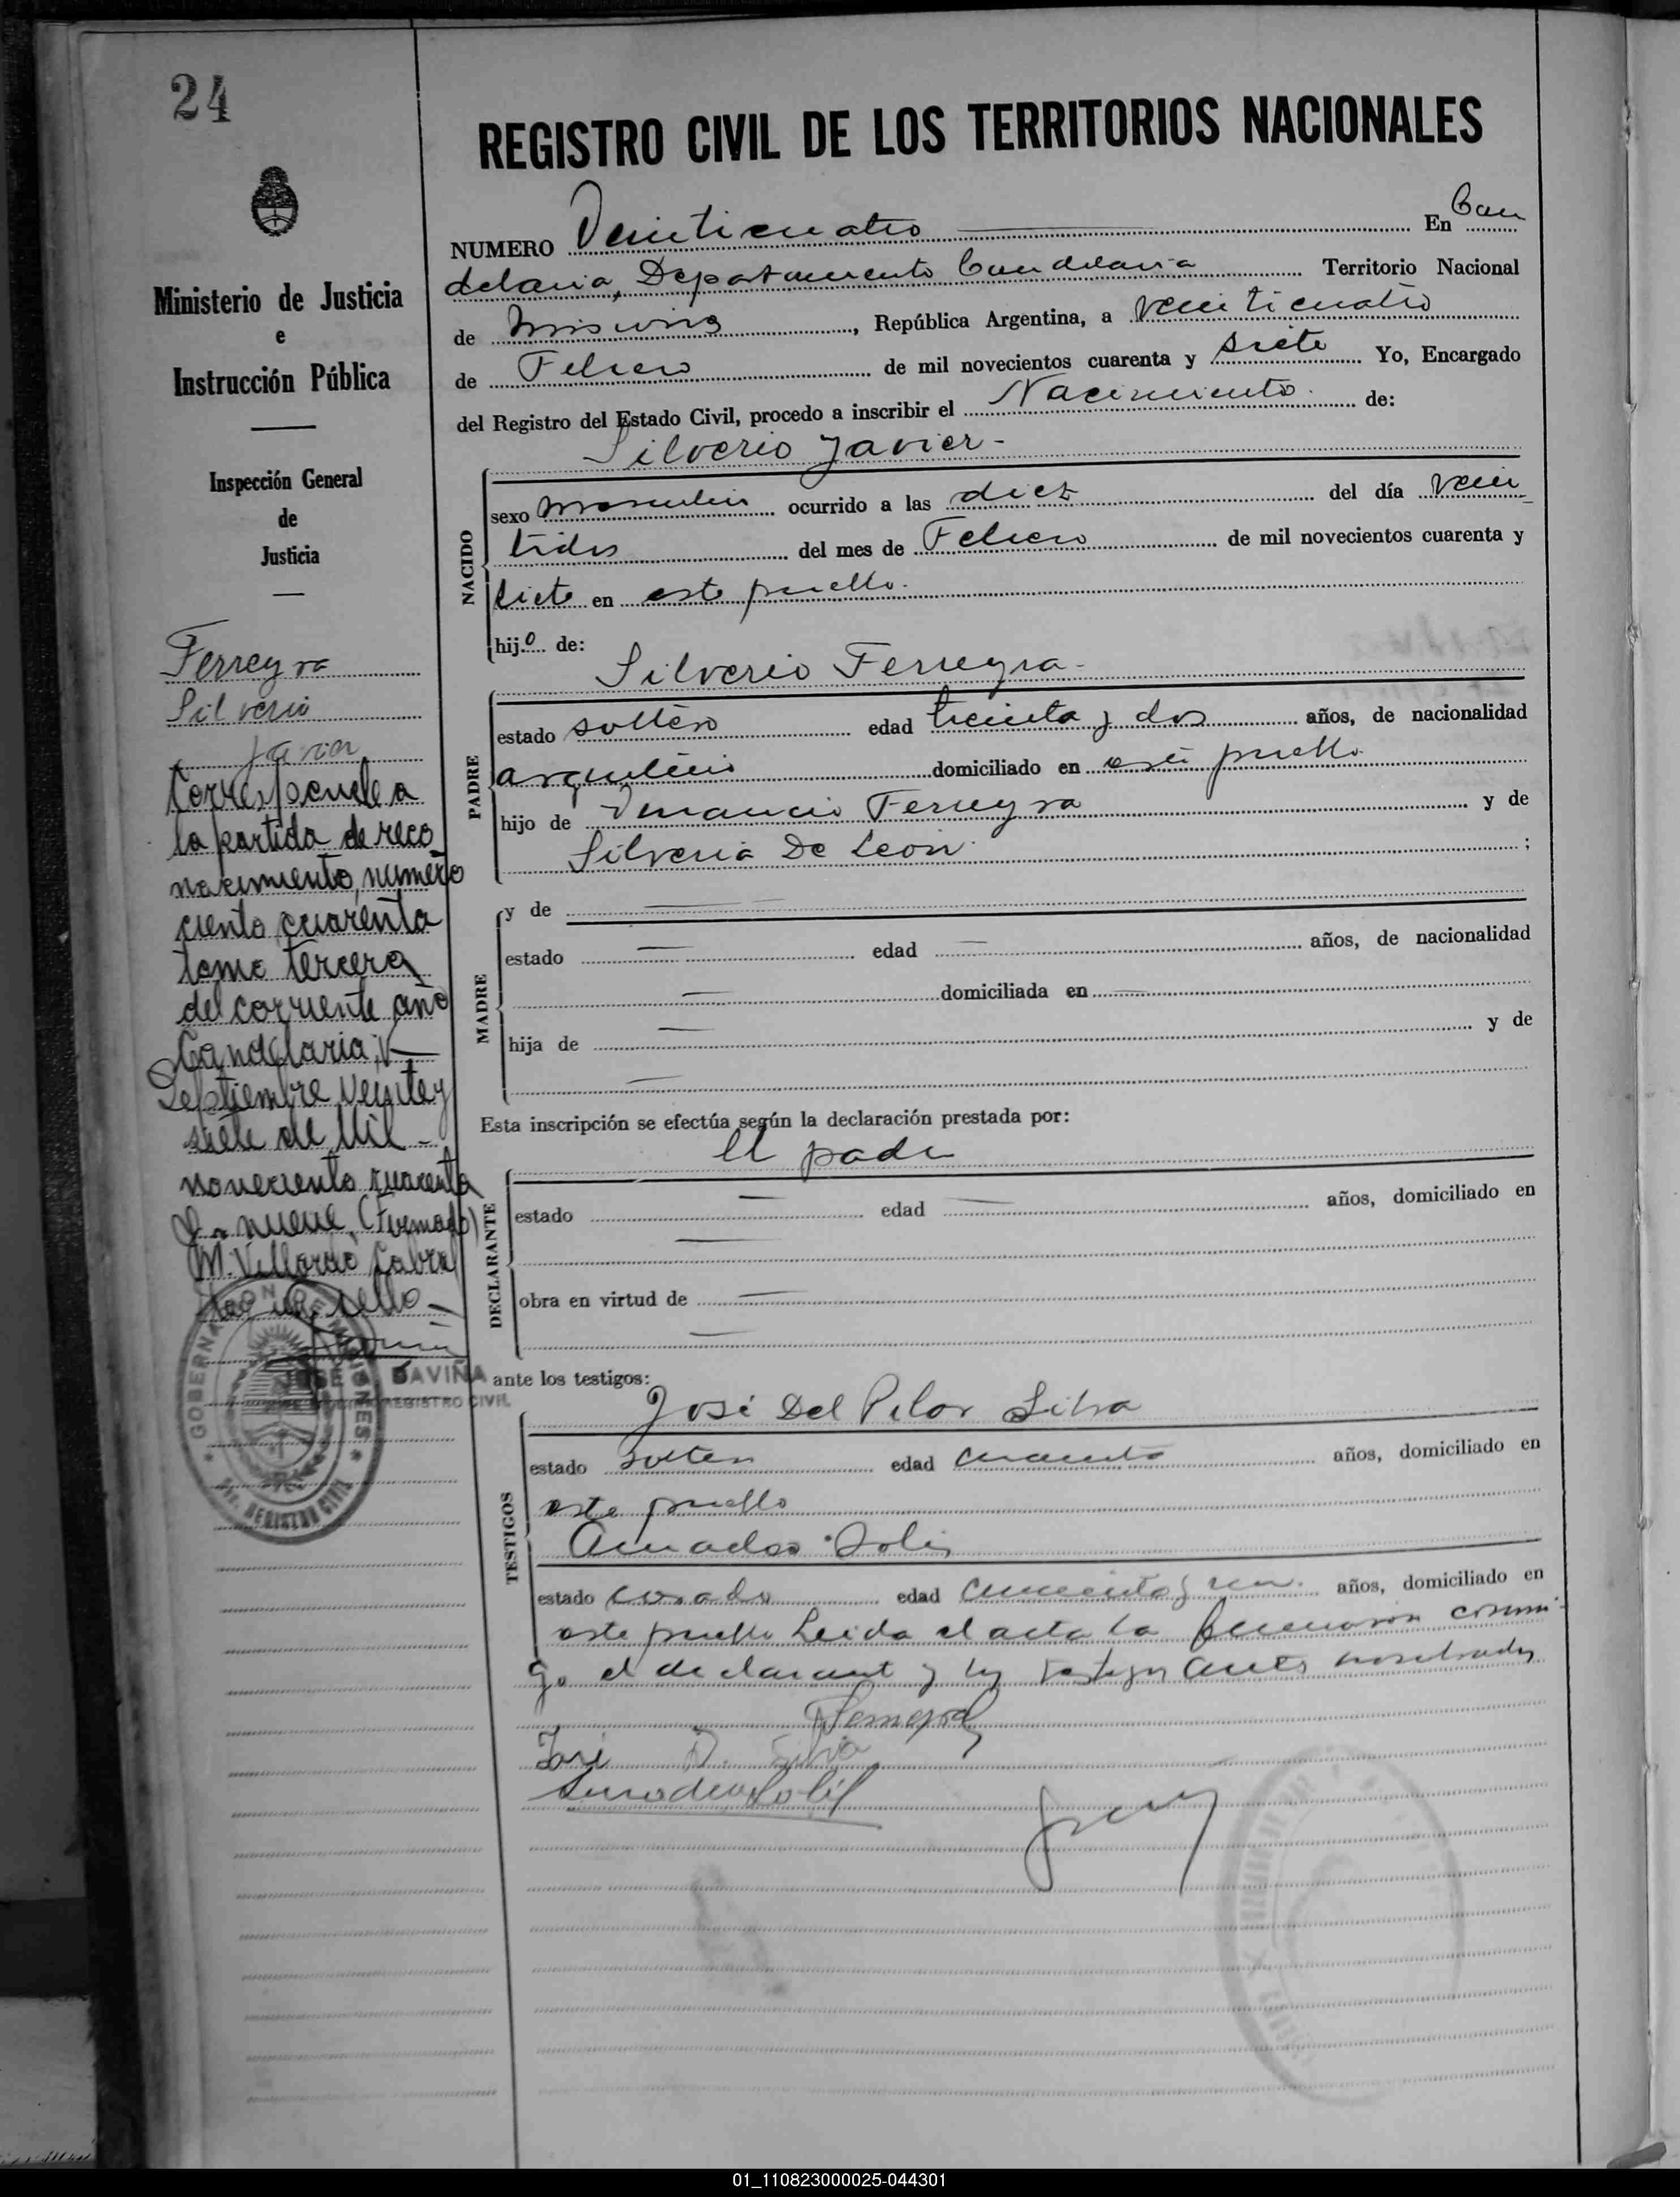 24
Ministerio de Justicia
e
Instrucción Pública
Inspección General
de
Justicia
Ferreyra
Silverio
Javier
Corresponde a
la partida de reco
nocimiento, numero
ciento cuarenta
tomo tercera
del corriente año
Candelaria,
Septiembre veinte y
siete de Mil
noveciento cuarenta
y nueve. (Firmado)
M. Villordo Cabral
hay un sello
GOBERNACION DE MISIONES
REGISTRO CIVIL
JOSÉ DAVIÑA
REGISTRO CIVIL
REGISTRO CIVIL DE LOS TERRITORIOS NACIONALES
NUMERO Veinticuatro En Can
delaria, Departamento Candelaria Territorio Nacional
de Misiones, República Argentina, a veinticuatro
de Febrero de mil novecientos cuarenta y siete Yo, Encargado
del Registro del Estado Civil, procedo a inscribir el Nacimiento de:
Silverio Javier
NACIDO
sexo masculino ocurrido a las diez del día vein
tidos del mes de Febrero de mil novecientos cuarenta y
siete en este pueblo
hijo de:
Silverio Ferreyra
PADRE
estado soltero edad treinta y dos años, de nacionalidad
argentino domiciliado en este pueblo
hijo de Ferreyra y de
Silveria De Leon ;
MADRE
y de
estado edad años, de nacionalidad
domiciliada en
hija de y de
Esta inscripción se efectúa según la declaración prestada por:
el padre
DECLARANTE
estado edad años, domiciliado en
obra en virtud de
ante los testigos:
José Del Pilar Silva
TESTIGOS
estado soltero edad cuarenta años, domiciliado en
este pueblo
Amador Solis
estado casado edad años, domiciliado en
este pueblo Leida el acta la firmaron conmi
go el declarante y los testigos antes nombrados
Ferreyra
José D. Silva
Amador Solis
01_110823000025-044301